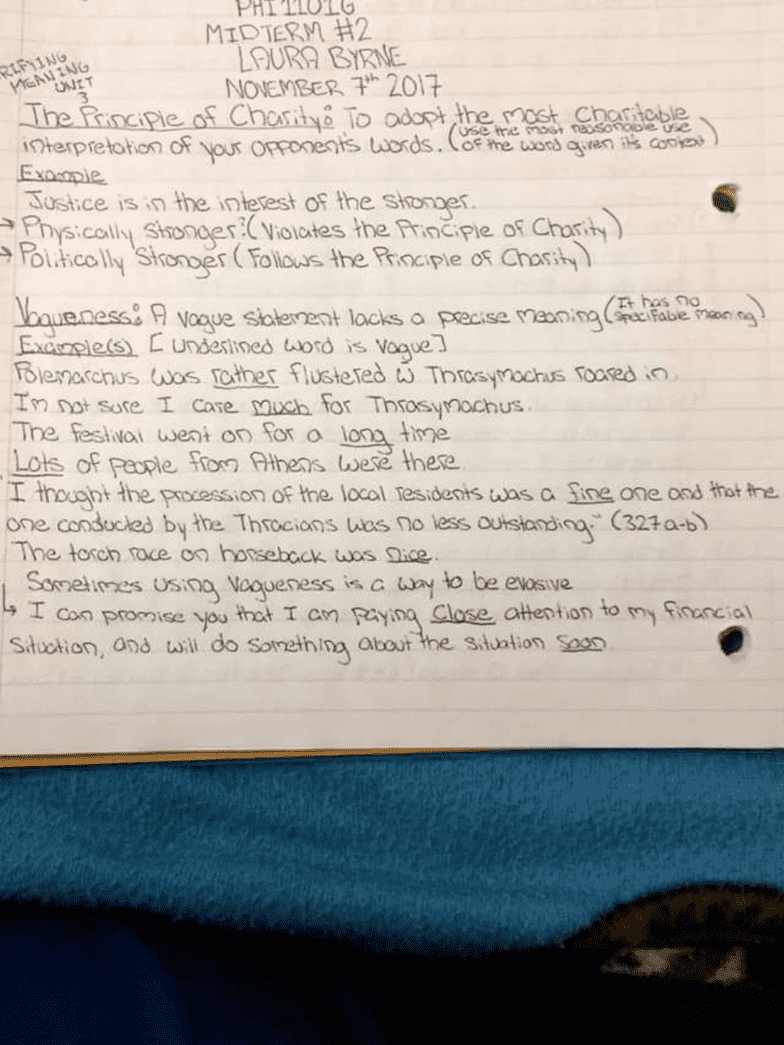 PHI1101G
MIDTERM #2
LAURA BYRNE
NOVEMBER 7th 2017
RIFYING
MEANING
UNIT
3
The Principle of Charity: To adopt the most Charitable
interpretation of your opponent's words. (use the most reasonable use of the word given it's context)
Example
Justice is in the interest of the stronger.
→ Physically Stronger? (Violates the Principle of Charity)
→ Politically Stronger (Follows the Principle of Charity)
Vagueness: A vague statement lacks a precise meaning (It has no specifiable meaning)
Example(s) [underlined word is vague]
Polemarchus was rather flustered w Thrasymachus roared in.
I'm not sure I care much for Thrasymachus.
The festival went on for a long time
Lots of people from Athens were there
I thought the procession of the local residents was a fine one and that the
one conducted by the Thracians was no less outstanding." (327a-b)
The torch race on horseback was nice.
Sometimes using vagueness is a way to be evasive
↳ I can promise you that I am paying close attention to my financial
situation, and will do something about the situation soon